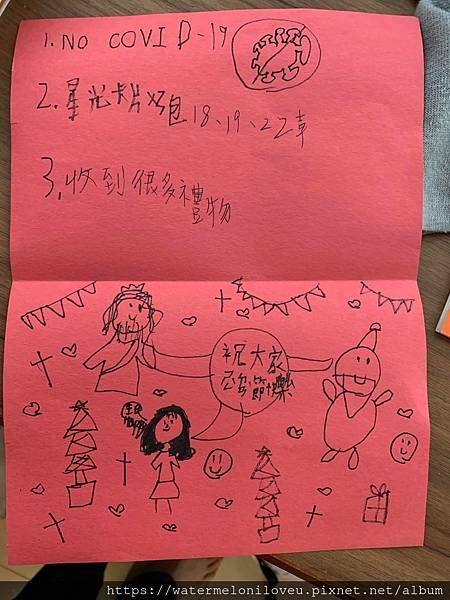 1. NO COVID-19
2. 星光卡片 包 18、19、22
3. 收到很多禮物
祝大家
聖誕節快樂
https://watermeloniloveu.pixnet.net/album